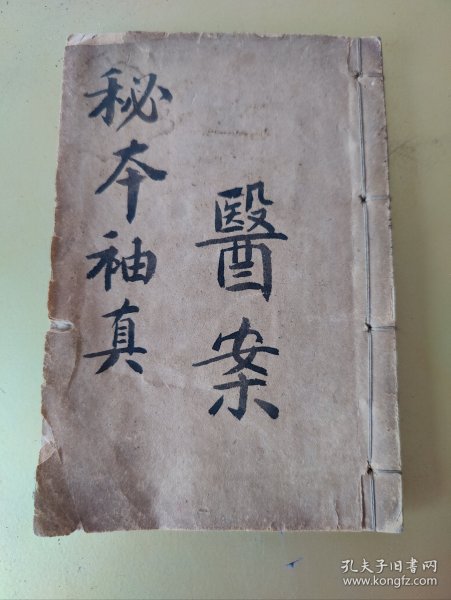 醫案
秘本袖真
孔夫子旧书网
www.kongfz.com